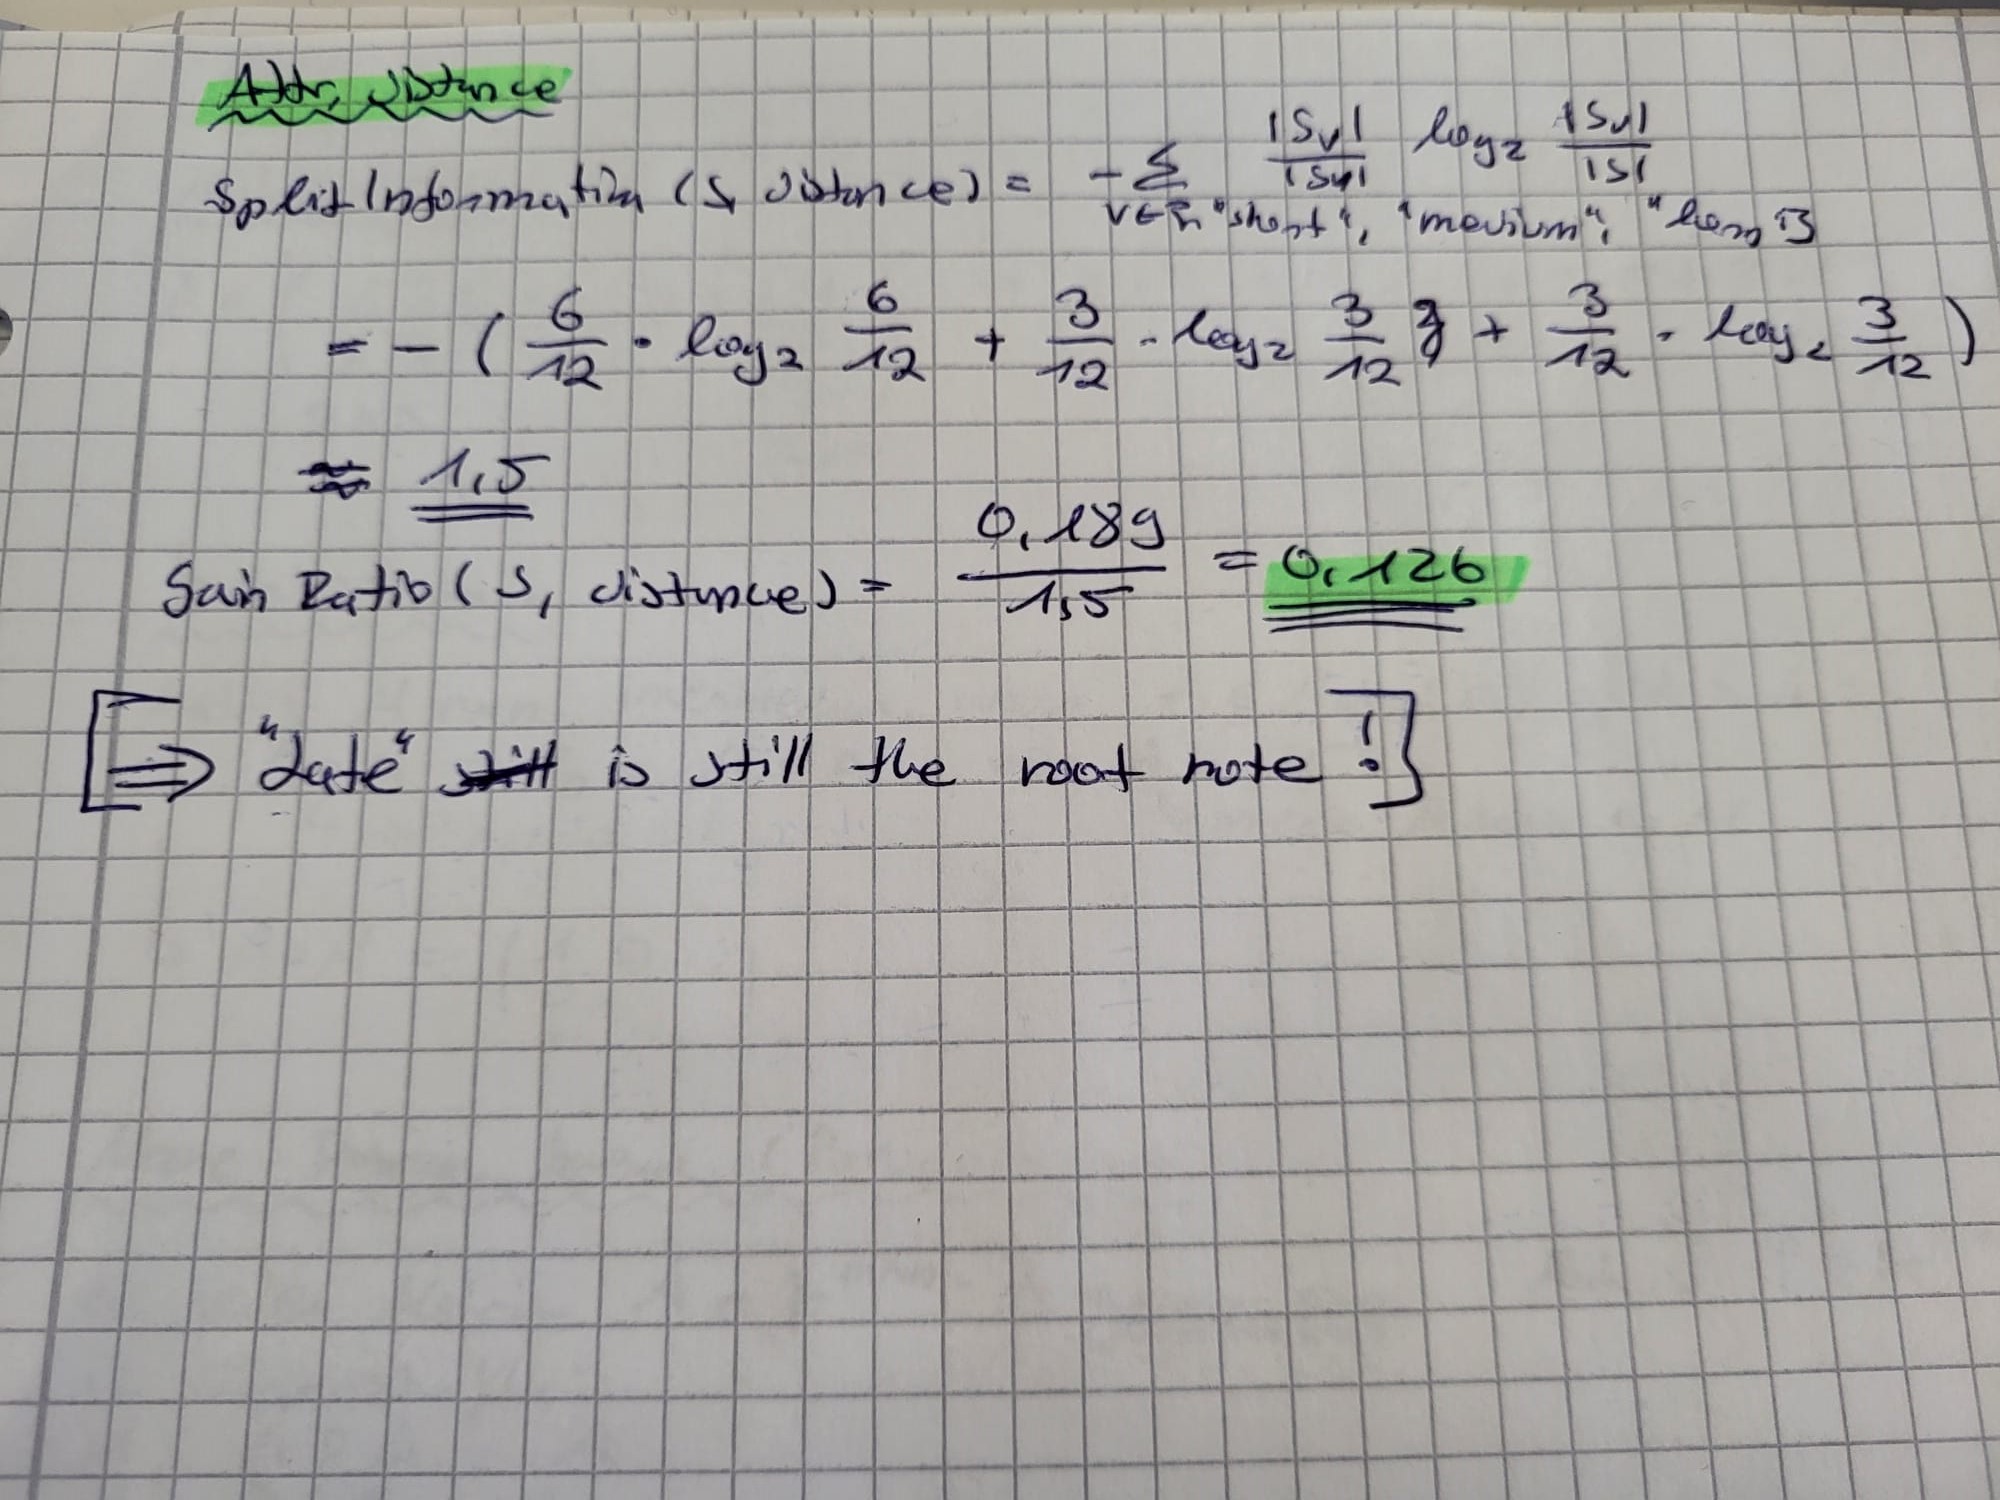 Attr. distance
Split Information (S, distance) = - Σ |Sv| / |Sv| log₂ |Sv| / |S|
v ∈ { "short", "medium", "long" }
= - ( 6/12 · log₂ 6/12 + 3/12 · log₂ 3/12 + 3/12 · log₂ 3/12 )
≈ 1,5
Gain Ratio (S, distance) = 0,189 / 1,5 = 0,126
[⇒ "date" still is still the root note !]